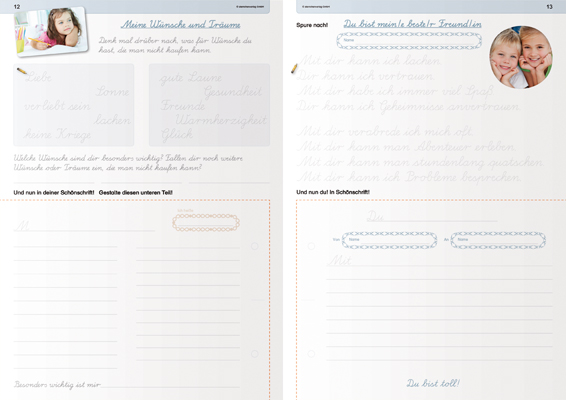 12
Meine Wünsche und Träume
Denk mal drüber nach, was für Wünsche du
hast, die man nicht kaufen kann.
Liebe
Sonne
verliebt sein
lachen
keine Kriege
gute Laune
Gesundheit
Freunde
Warmherzigkeit
Glück
Welche Wünsche sind dir besonders wichtig? Fallen dir noch weitere
Wünsche oder Träume ein, die man nicht kaufen kann?
Und nun in deiner Schönschrift! Gestalte diesen unteren Teil!
Besonders wichtig ist mir
13
Spure nach!
Du bist mein/e beste/r Freund/in
Name
Mit dir kann ich lachen.
Dir kann ich vertrauen.
Mit dir habe ich immer viel Spaß.
Dir kann ich Geheimnisse anvertrauen.
Mit dir verabrede ich mich oft.
Mit dir kann man Abenteuer erleben.
Mit dir kann man stundenlang quatschen.
Mit dir kann ich Probleme besprechen.
Und nun du! In Schönschrift!
Du
Von Name An Name
Mit
Du bist toll!